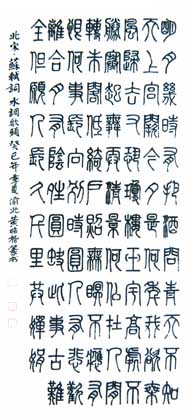 明月幾時有把酒問青天不知
天上宮闕今夕是何年我欲乘
風歸去又恐瓊樓玉宇高處不
勝寒起舞弄清影何似在人間
轉朱閣低綺戶照無眠不應有
恨何事長向別時圓人有悲歡
離合月有陰晴圓缺此事古難
全但願人長久千里共嬋娟
北宋蘇軾詞水調歌頭癸巳年季夏渝北黃